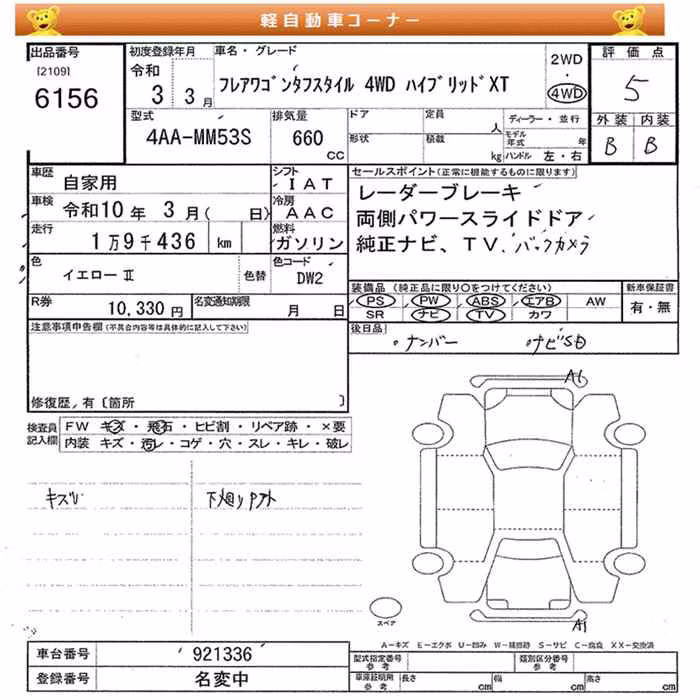 軽自動車コーナー
出品番号
[2109]
6156
初度登録年月
令和
3 3月
車名・グレード
フレアワゴンタフスタイル 4WD ハイブリッドXT
2WD
・
4WD
評価点
5
外装 内装
B B
型式
4AA-MM53S
排気量
660
CC
ドア
定員
人
形状
積載
kg
ディーラー・並行
モデル年式 年
ハンドル 左・右
車歴
自家用
シフト
IAT
車検
令和10年 3月( 日)
冷房
AAC
走行
1万9千436 km
燃料
ガソリン
色
イエローⅡ
色替
色コード
DW2
R券
10,330円
名変通知期限
月 日
セールスポイント(正常に機能するものに限ります)
レーダーブレーキ
両側パワースライドドア
純正ナビ、TV、バックカメラ
装備品 (純正品に限り○をつけてください)
PS PW ABS エアB AW
SR ナビ TV カワ
新車保証書
有・無
後日品
ナンバー ナビSD
注意事項申告欄(不具合内容等は具体的に記入して下さい)
修復歴,有〔箇所 〕
検査員
記入欄
FW キズ・飛石・ヒビ割・リペア跡・×要
内装 キズ・汚レ・コゲ・穴・スレ・キレ・破レ
A1
スペア
A1
A-キズ E-エクボ U-凹み W-補修跡 S-サビ C-腐食 XX-交換済
車台番号
921336
登録番号
名変中
型式指定番号
参考
類別区分番号
参考
車庫証明用
参考
長さ cm
幅 cm
高さ cm